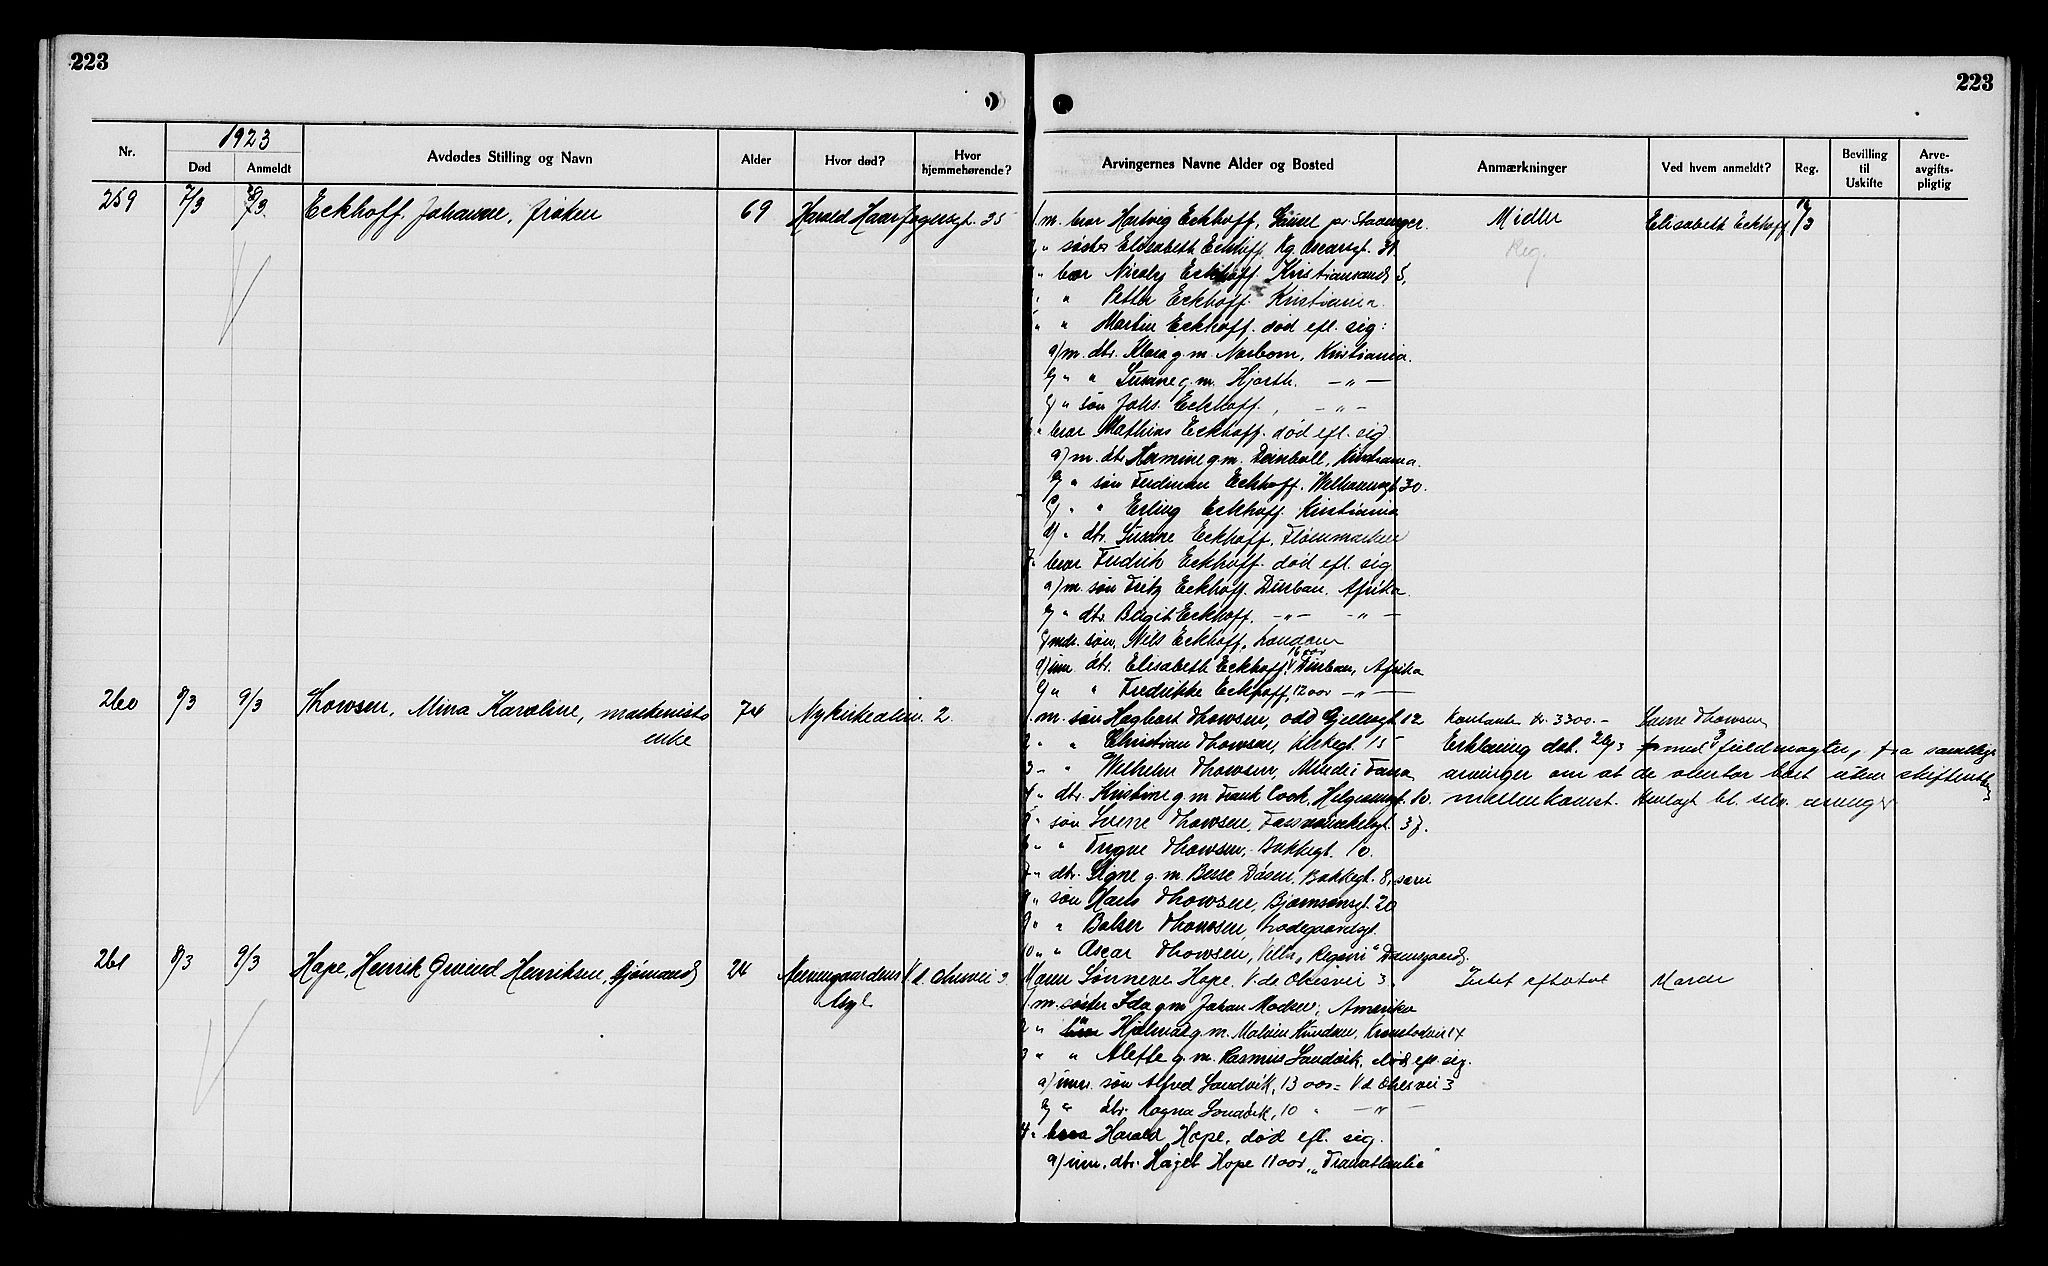 223
223
1923
Nr.
Død
Anmeldt
Avdødes Stilling og Navn
Alder
Hvor død?
Hvor hjemmehørende?
Arvingernes Navne Alder og Bosted
Anmærkninger
Ved hvem anmeldt?
Reg.
Bevilling til Uskifte
Arve-avgifts-pligtig
259 7/3 Eckhoff, Johanne, frøken 69 Harald Haarfagersgt. 35
1. m. bror Hartvig Eckhoff, pr. Stavanger. Midler Elisabeth Eckhoff
2 " søster Elisabeth Eckhoff, Kg. Oscarsgt. Reg.
3 " bror Nicolay Eckhoff. Kristiansand S.
4 " " Petter Eckhoff. Kristiania.
5 " " Martin Eckhoff. død eft. sig:
a/ m. dtr. Klara g.m. Kristiania.
b/ " " Susanne g.m. Hjorth. — " —
c/ " søn Johs. Eckhoff, — " —
6 " bror Mathias Eckhoff. død eft. sig
a/ m. dtr. Hermine g.m. Kristiania.
b/ " søn Ferdinan Eckhoff. Welhavensgt. 30.
c/ " " Erling Eckhoff. Kristiania
d/ " dtr. Susanne Eckhoff,
7 " bror Fredrik Eckhoff. død eft. sig
a/ m. søn Fritz Eckhoff. Durban. Afrika.
b/ " dtr. Birgit Eckhoff. — " — — " —
c/ søn, Nils Eckhoff, London
d/ um. dtr. Elisabeth Eckhoff, 16 aar Durban, Afrika
e/ " " Fredrikke Eckhoff, 12 aar — " —
260 8/3 9/3 Thowsen, Mina Karoline, maskinist 74 Nykirkealm. 2.
enke
1. m. søn Hagbart Thowsen, Odd Gjelsvgt. 12 Kontanter kr. 3300.– Thowsen
2 " " Christian Thowsen, Kirkegt. 15 Erklæring dat. med fuldmagter, fra samtlige
3 – " Wilhelm Thowsen, Minde i Fana arvinger om at de overtar boet uten skifterettens
4 " dtr. Kristine g.m. Frank Cook, Helgesensgt. 10. mellemkomst. Henlagt bl. selv. arvinger
5 " søn Sverre Thowsen, 37.
6 " " Trygve Thowsen, Bakkegt. 10.
7 " dtr. Signe g.m. Bakkegt. 8,
8 " søn Hans Thowsen, Bjørnsonsgt. 20
9 " " Balser Thowsen, Ladegaardsgt.
10 " " Oscar Thowsen, Villa, Damsgaard.
261 8/3 9/3 Hope, Henrik Henriksen, Sjømand 24 Neevengaardens V.d. 3
Asyl
Moren Sønneve Hope, V.d. 3. Intet efterlatt Moren
1. m. søster Ida g.m. Johan Madsen, Amerika
2 " " Hjalmar g.m. Knudsen, 14
3 " " Alette g.m. Rasmus Sandvik, død eft. sig.
a/ um. søn Alfred Sandvik, 13 aar = V.d. 3
b/ " dtr. Ragna Sandvik, 10 " — " —
4 " bror Harald Hope, død eft. sig.
a/ um. dtr. Hope 11 aar,